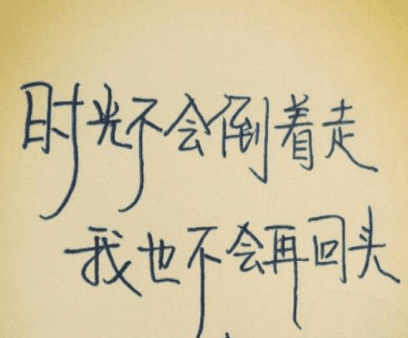 时光不会倒着走
我也不会再回头